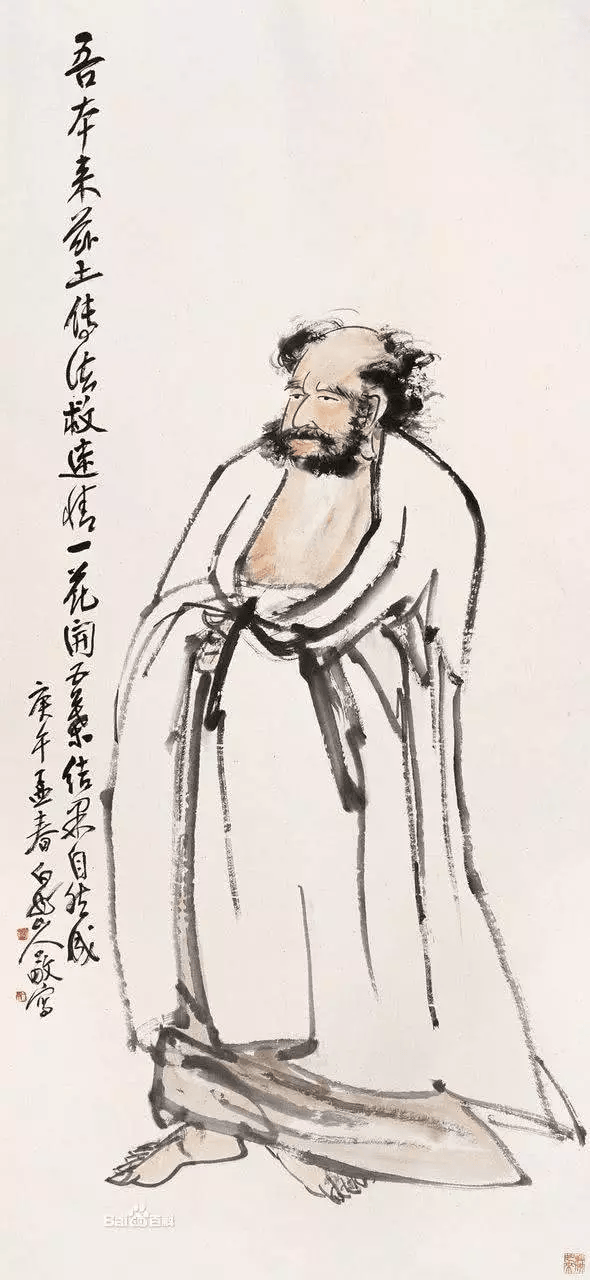 吾本来兹土传法救迷情一花開五葉结果自然成
庚午孟春白龙山人敬寫
Bai du 百科